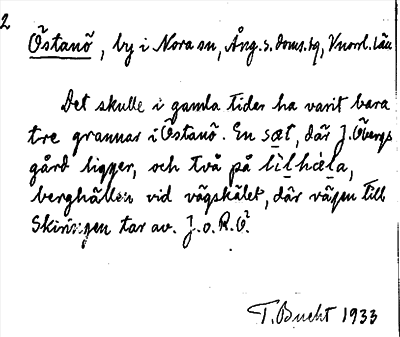 2
Östanö, by i Nora sn, Ång. s. doms.sq, Vnorrl. län
Det skulle i gamla tider ha varit bara
tre grannar i Östanö. En sæt, där J. Öbergs
gård ligger, och två på lilhæla,
berghällen vid vägskälet, där vägen till
Skiringen tar av. J. o. R. Ö.
T. Bucht 1933